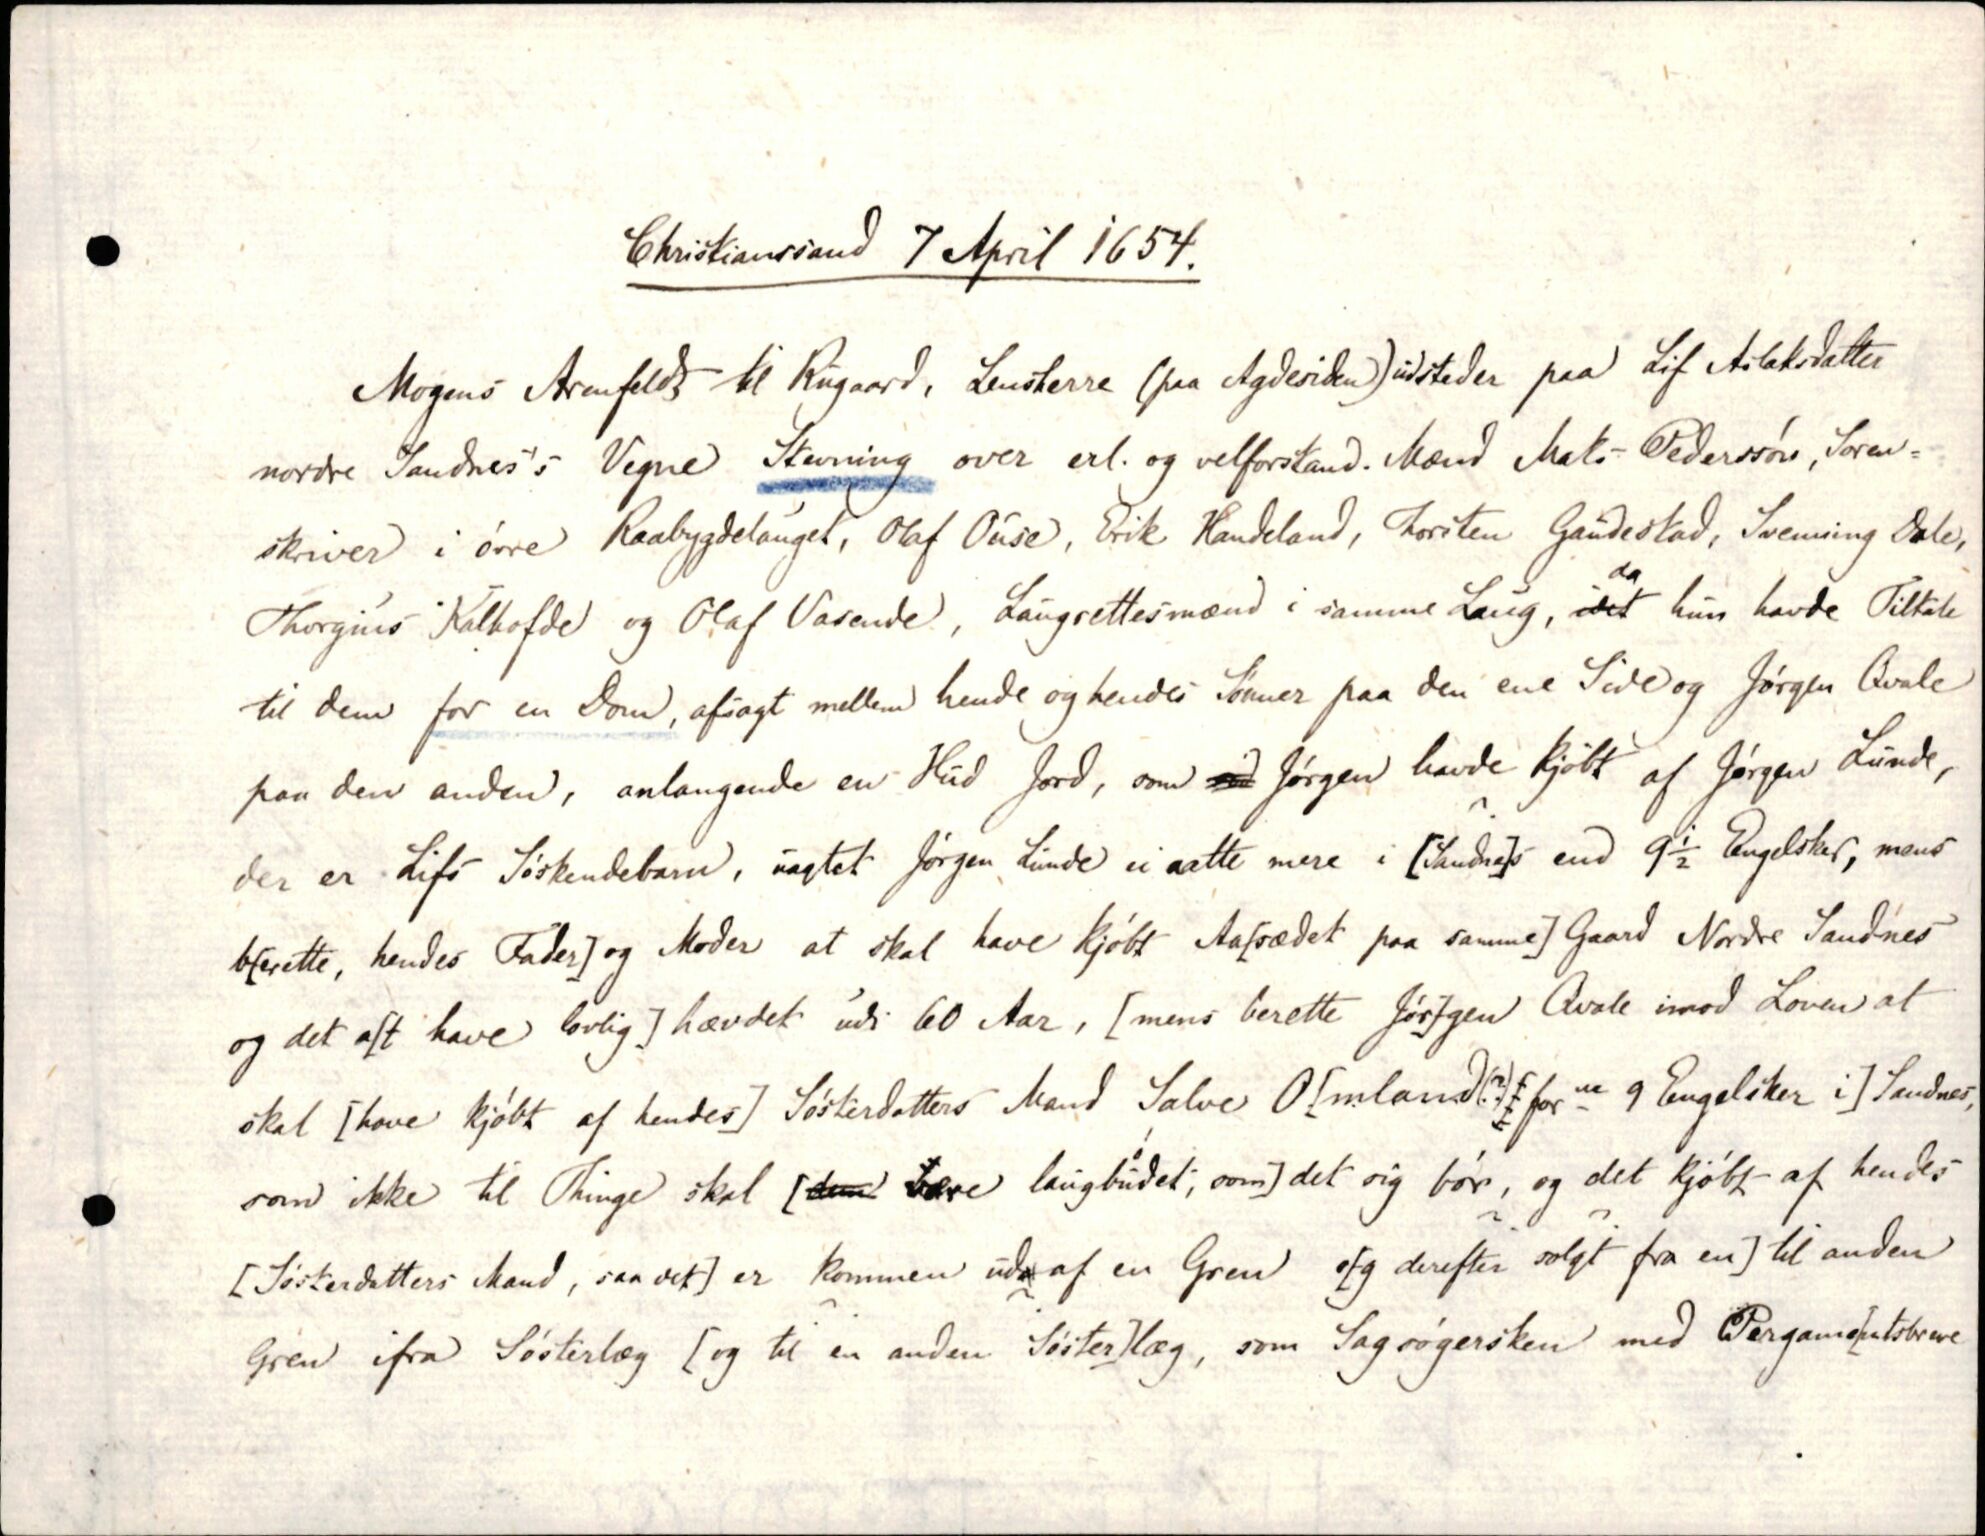 Christianssand 7 April 1654.
Mogens Arenfeldt til Rugaard, Lensherre (paa Agdesiden) udsteder paa Lif Aslaksdatter
nordre Sandnes's Vegne Stevning over erl. og velforstand. Mænd Mats Pederssøn, Soren-
skriver i øvre Raabygdelauget, Olaf Ouse, Erik Handeland, Thorsten Gaudestad, Svenning Dale,
Thorgius Kalhofde og Olaf Vasende, Laugrettesmænd i samme Laug, idet da hun havde Tiltale
til dem for en Dom, afsagt mellem hende og hendes Sønner paa den ene Side og Jørgen Qvale
paa den anden, anlangende en Hud Jord, som Jørgen havde kjøbt af Jørgen Lunde,
der er Lifs Søskendebarn, uagtet Jørgen Lunde ei aatte mere i [Sandne]s end 9½ Engelsker, mens
b[erette, hendes Fader] og Moder at skal have kjøbt Aa[sædet paa samme] Gaard Nordre Sandnes
og det a[t have lovlig] hævdet udi 60 Aar, [mens berette Jør]gen Qvale imod Loven at
skal [have kjøbt af hendes] Søsterdatters Mand Salve O[mland(?) for 9 Engelsker i] Sandnes,
som ikke til Thinge skal [være laugbudet, som] det sig bør, og det kjøbt af hendes
[Søsterdatters Mand, saa det] er kommen ud af en Gren o[g derefter solgt fra en] til anden
Gren ifra Søsterlæg [og til en anden Søster]læg, som Sagsøgersken med Pergame[ntsbreve